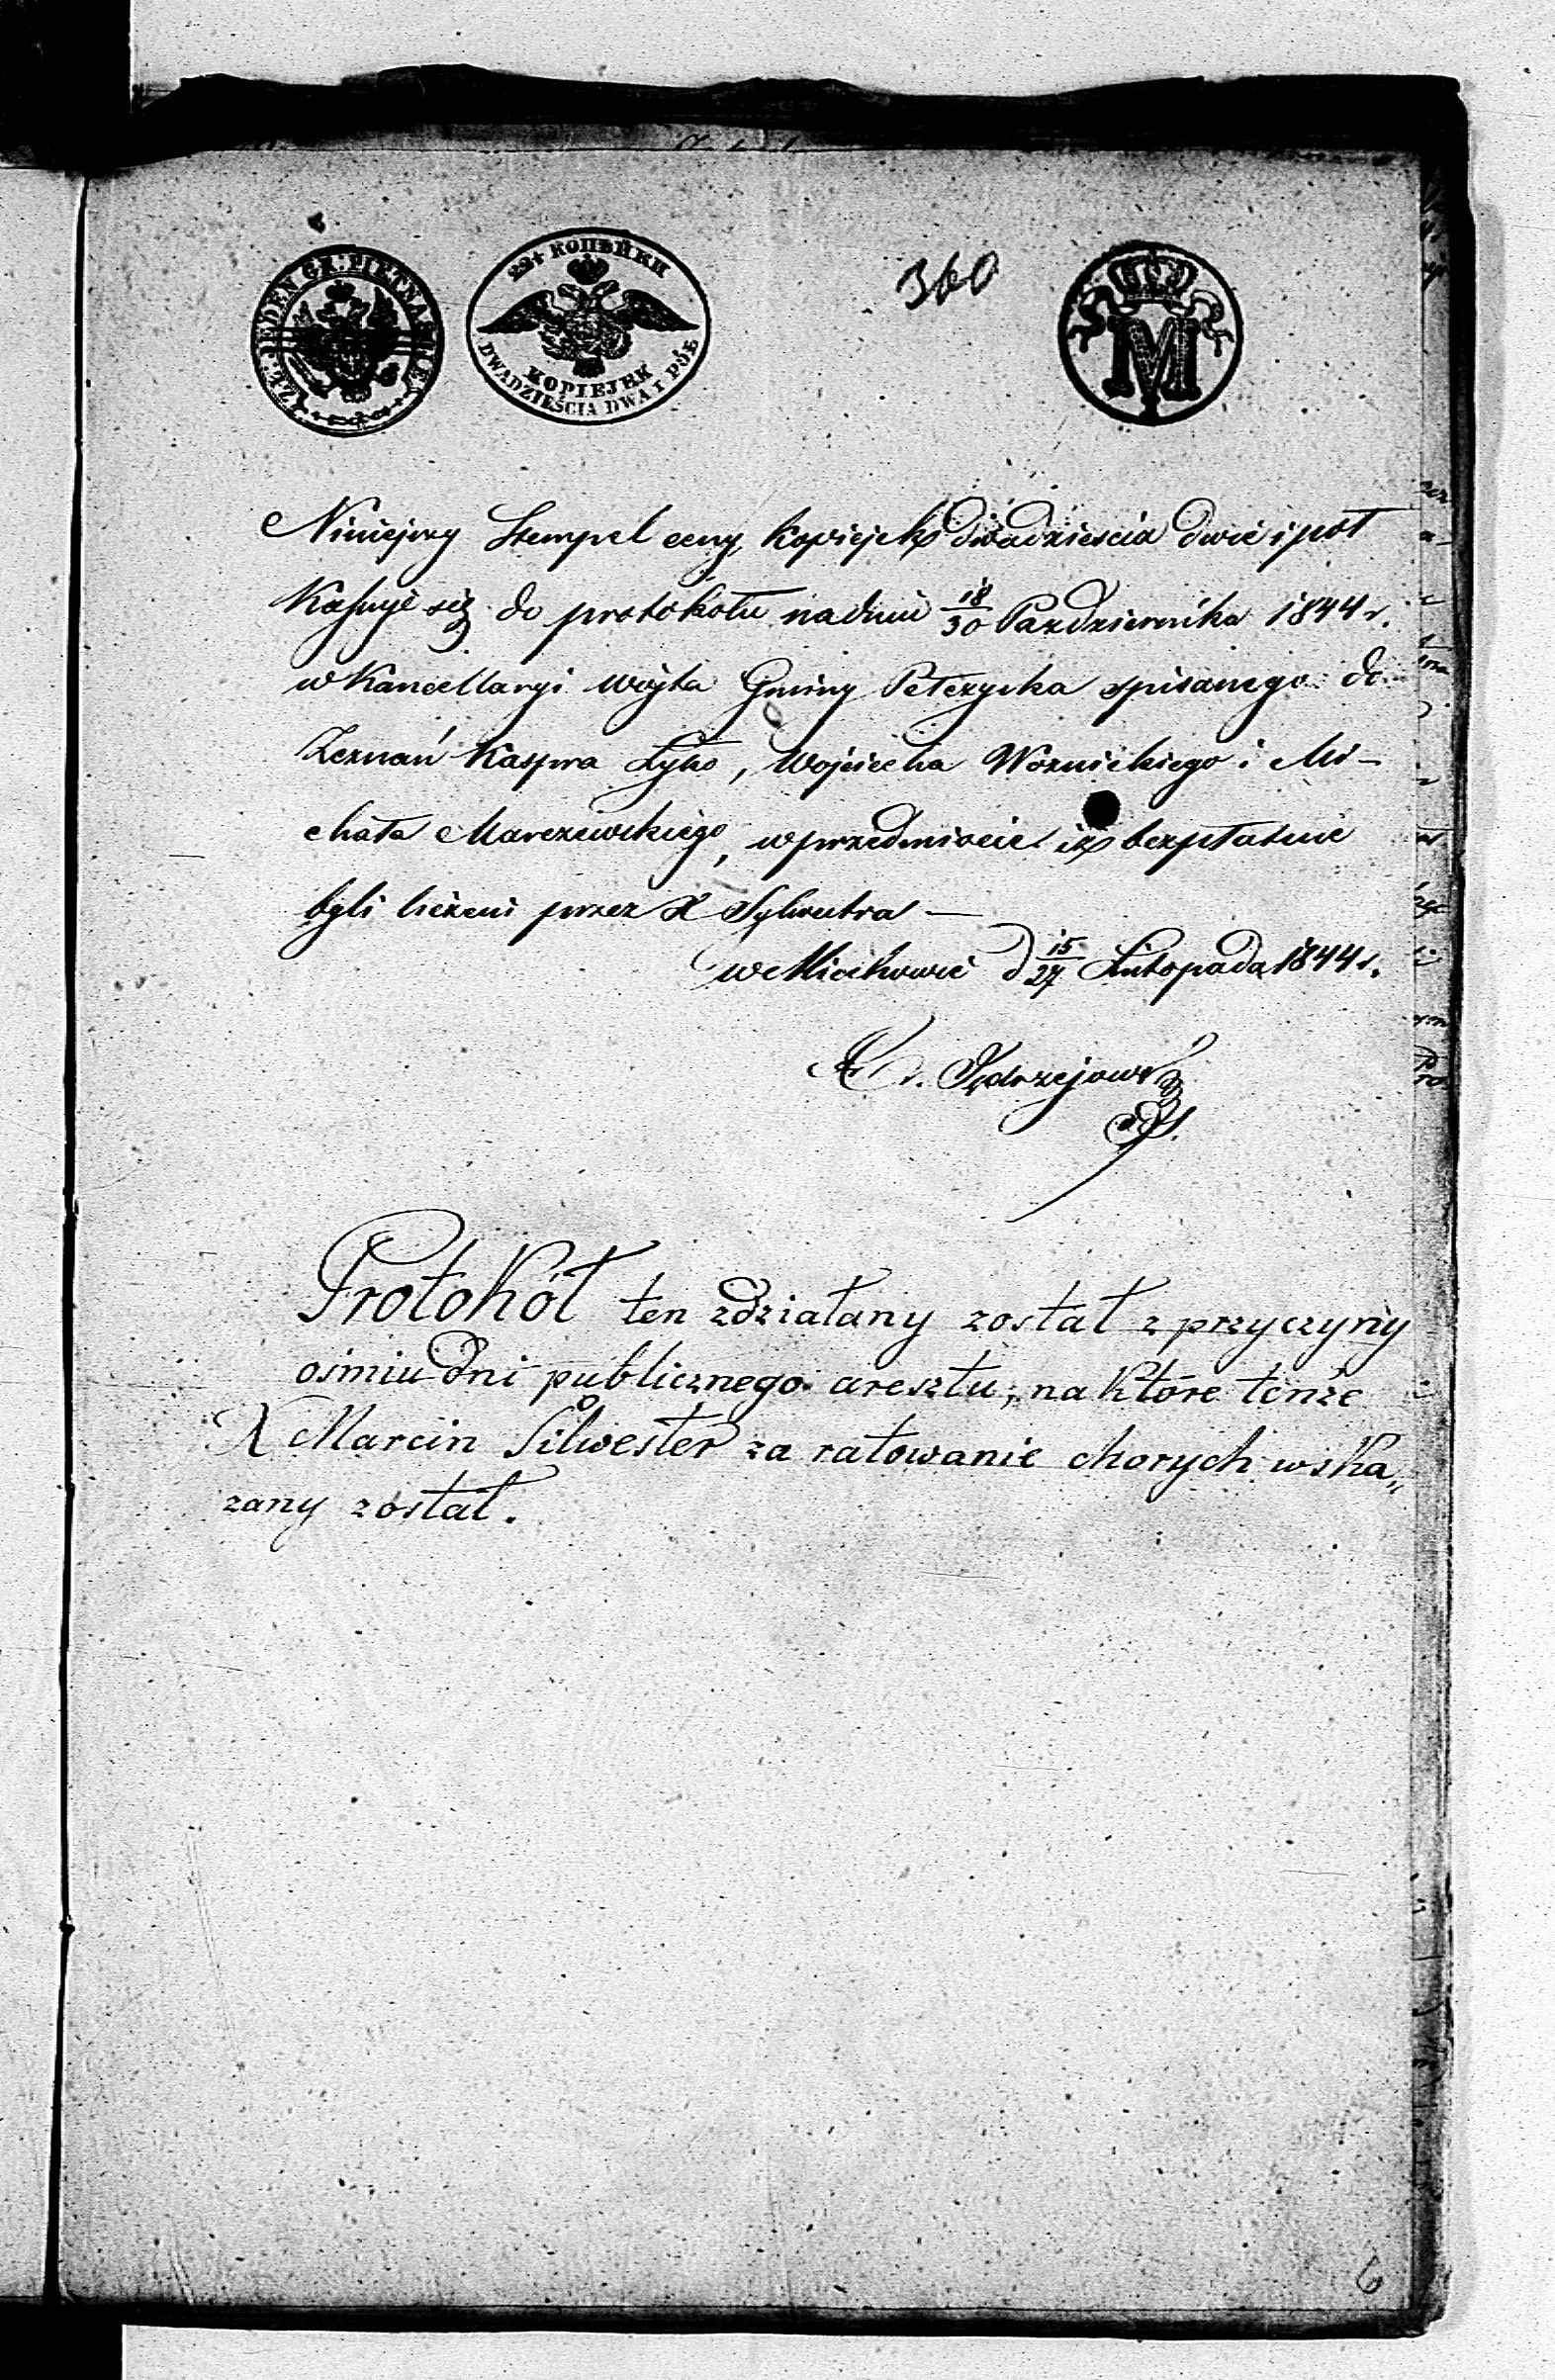 ZŁ: JEDEN GR: PIĘTNAŚCIE
22½ КОПѢЙКИ
KOPIEJEK
DWADZIEŚCIA DWA I PÓŁ
360
M
Niniejszy Stempel ceny kopiejek dwadzieścia dwie i pół
Kassuje się do protokółu na dniu 18/30 Października 1844 r.
w Kancellaryi Wójta Gminy Pełczyska spisanego do
Zeznań Kaspra Łyko, Wojciecha Woźnickiego i Mi-
chała Marczewskiego, w przedmiocie iż bezpłatnie
byli liczeni przez X Sylwestra —
w Miechowie d 15/27 Listopada 1844 r.
Jędrzejows
Protokół ten zdziałany został z przyczyny
ośmiu dni publicznego aresztu, na które tenże
X Marcin Silwester za ratowanie chorych wska„
zany został.